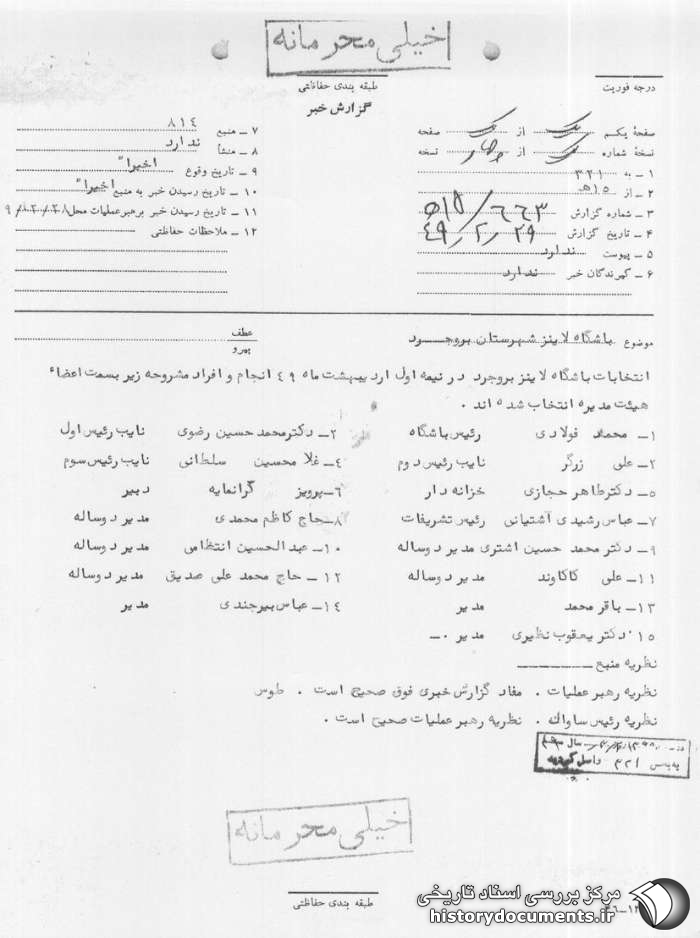 خیلی محرمانه
طبقه بندی حفاظتی
درجه فوریت
گزارش خبر
صفحه یکم از صفحه
نسخه شماره از چهار نسخه
۱ـ به ۳۲۱
۲ـ از ۱۵ ه
۳ـ شماره گزارش ۶۶۳/ ۱۵ه
۴ـ تاریخ گزارش ۲۹/۲/۴۹
۵ـ پیوست ندارد
۶ـ گیرندگان خبر ندارد
۷ـ منبع ۸۱٤
۸ـ منشأ ندارد
۹ـ تاریخ وقوع اخیرا"
۱۰ـ تاریخ رسیدن خبر به منبع اخیرا"
۱۱ـ تاریخ رسیدن خبر برهبر عملیات محل
۱۲ـ ملاحظات حفاظتی
موضوع باشگاه لاینز شهرستان بروجـــرد
عطف
پیرو
انتخابات باشگاه لاینز بروجرد در نیمه اول اردیبهشت ماه ٤۹ انجام و افراد مشروحه زیر بسمت اعضاء
هیئت مدیره انتخاب شده اند .
۱ـ محمد فولادی رئیس باشگاه ۲ـ دکتر محمد حسین رضوی نایب رئیس اول
۲ـ علی زرگر نایب رئیس دوم ٤ـ غلامحسین سلطانی نایب رئیس سوم
۵ـ دکتر طاهر حجازی خزانه دار ۶ـ پرویز گرانمایه دبیر
۷ـ عباس رشیدی آشتیانی رئیس تشریفات ۸ـ حاج کاظم محمدی مدیر دوساله
۹ـ دکتر محمد حسین اشتری مدیر دوساله ۱۰ـ عبدالحسین انتظامی مدیر دوساله
۱۱ـ علی کاکاوند مدیر دوساله ۱۲ـ حاج محمد علی صدیق مدیر دوساله
۱۳ـ باقر محمد مدیر ۱٤ـ عباس بیرجندی مدیر
۱۵. دکتر یعقوب نظیری مدیر .ـ
نظریه منبع ــــــــــ
نظریه رهبر عملیات . مفاد گزارش خبری فوق صحیح است . طوس
نظریه رئیس ساواك . نظریه رهبر عملیات صحیح است .
به بخش ۳۲۱ واصل گردید
خیلی محرمانه
طبقه بندی حفاظتی
مرکز بررسی اسناد تاریخی
historydocuments.ir